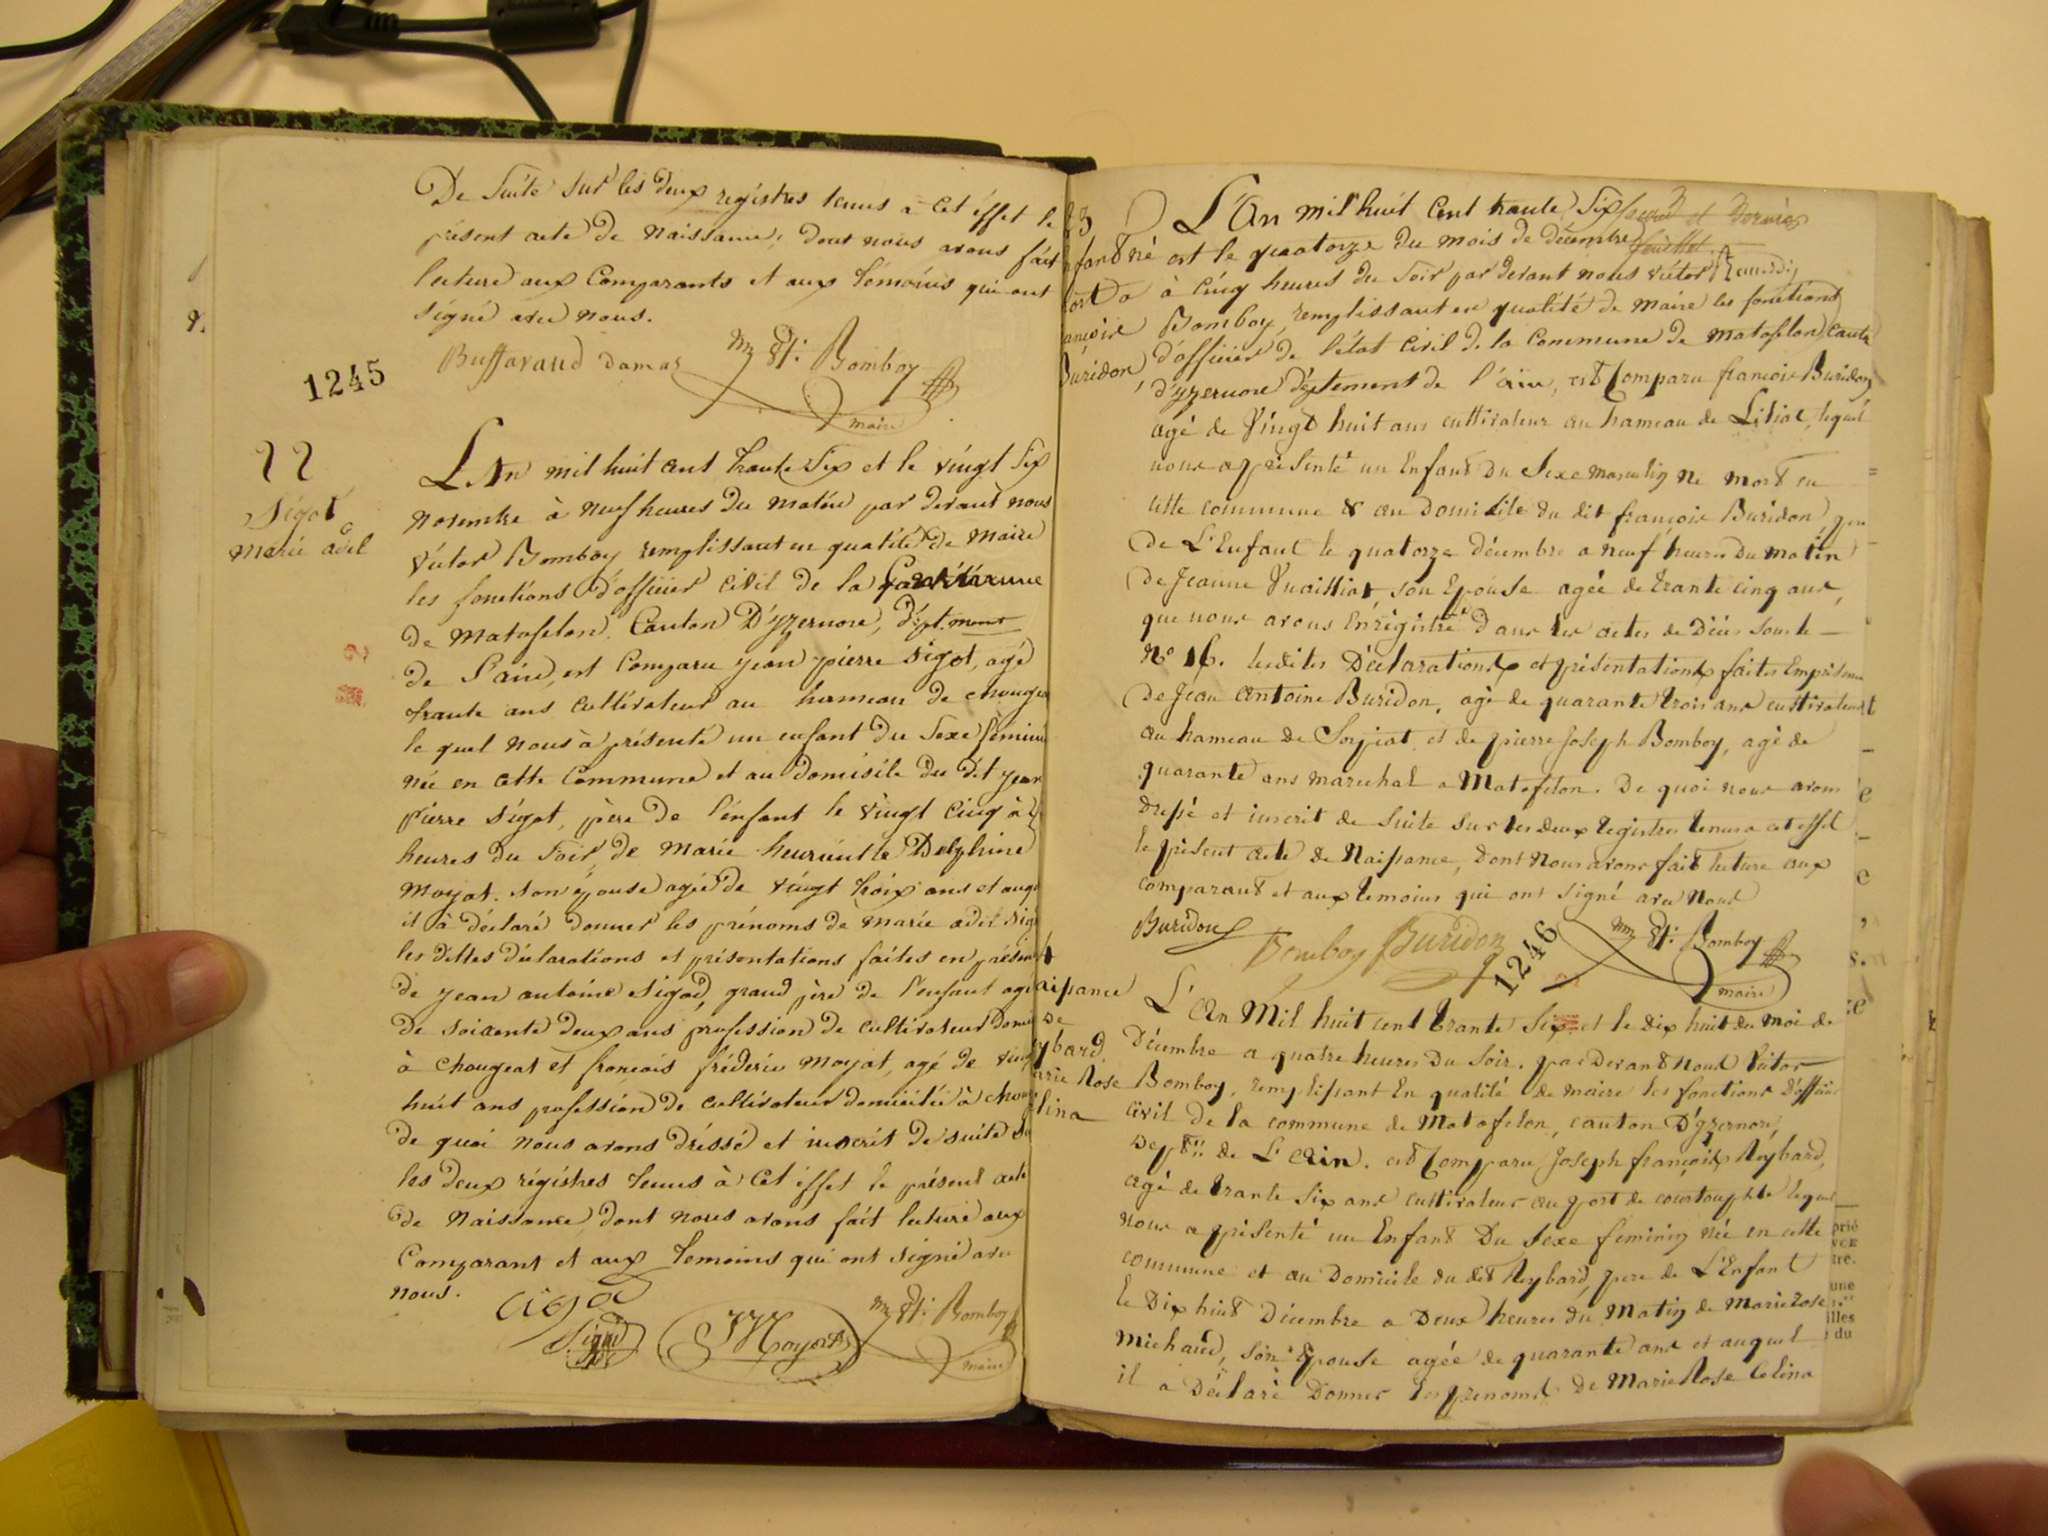 De Suite sur les deux registres tenus à cet éffet le
présent acte de naissance, dont nous avons fait
lecture aux Comparants et aux témoins qui ont
signé avec nous.
Buffavand damas Bomboy
maire
1245
22
Sigot
marie adel
L'An mil huit cent trante Six et le vingt Six
novembre à neuf heures du matin par devant nous
Victor Bomboy remplissant en qualité de maire
les fonctions d'officier civil de la Commune
de Matafelon, Canton D'yzernore, dépt.ment
de l'ain, est Comparu jean pierre sigot, agé
trante ans cultivateur au hameau de chougea
le quel nous à présenté un enfant du Sexe féminin
née en cette Commune et au domicile du dit jean
pierre sigot, père de l'enfant le vingt cinq à
heures du Soir, de marie henriette Delphine
moyat. son épouse agée de vingt troix ans et auqu
il à déclaré donner les prénoms de marie adel sigo
les dittes déclarations et présentations faites en présen
de jean antoine sigod, grand père de l'enfant agé
de soixante deux ans profession de cultivateur domi
à chougeat et francois fréderic moyat, agé de ving
huit ans profession de cultivateur domicilié à chou
de quoi nous avons dréssé et inscrit de suite su
les deux régistres tenus à cet éffet le présent acte
de naissance, dont nous avons fait lecture aux
Comparant et aux temoins qui ont signé avec
nous.
Sigod Moyat Bomboy
maire
23
fant né
ort
ançois
Buridon
L'An mil huit Cent trante Six
et le quatorze du mois de décembre
à cinq heures du Soir par devant nous victor
Bomboy, remplissant en qualité de maire les fonctions
d'officier de l'état civil de la Commune de matafelon, canton
d'yzernore déptement de l'ain, est Comparu francois Buridon
agé de Vingt huit ans cultivateur au hameau de Lihiat, lequel
nous a présenté un Enfant du Sexe masculin né mort en
cette commune & au domicile du dit françois Buridon, père
de L'Enfant le quatorze décembre a neuf heures du matin
de Jeanne Vuaillat, son Epouse agée de trante cinq ans,
que nous avons Enrégistré dans les actes de Décès sous le
N° 16. lesdites Déclarations et présentations faites En présence
de Jean Antoine Buridon, agé de quarante trois ans cultivateur
au hameau de Sorpiat et de pierre Joseph Bomboy, agé de
quarante ans marechal a Matafelon. De quoi nous avons
Dressé et inscrit de suite sur les deux registres tenus a cet effet
le présent acte de Naissance, dont Nous avons fait lecture aux
comparants et aux temoins qui ont signé avec Nous
Buridon Bomboy Buridon Bomboy
maire
1246
aissance
De
ybard
arie Rose
lina
L'An Mil huit cent trante Six et le Dix huit du moi de
Décembre a quatre heures du Soir. par Devant Nous Victor
Bomboy, remplissant En qualité de maire les fonctions d'officier
civil de la commune de Matafelon, canton D'yzernore,
Dept de L'Ain. est Comparu Joseph françois Reybard,
agé de trante six ans cultivateur au port de courtouphle lequel
Nous a présenté un Enfant Du Sexe feminin née en cette
commune et au Domicile du dit Reybard, pere de L'Enfant
le Dix huit Décembre a Deux heures du Matin de Marie Rose
Michaud, son Epouse agée de quarante ans et auquel
il a Déclaré Donner les prenoms de Marie Rose Celina